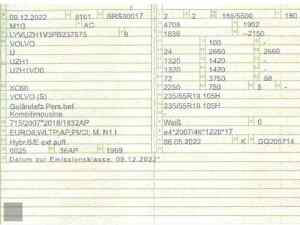 09.12.2022 8101 SRS00017 2 2 155/5500 180
M1G AC 4708 1902
LYVUZH1V3PB237575 6 1658 --2150
VOLVO 100 -
U 24 2660 2660
UZH1 1320 1420 -
UZH1VD0 1320 1420 -
72 3750 68
XC60 2250 750 5 -
VOLVO (S) 235/55R19 105H
Geländefz.Pers.bef. 235/55R19 105H
Kombilimousine
715/2007*2018/1832AP Weiß 0
EURO6;WLTP;AP;PI/CI; M, N1 I e4*2007/46*1220*17
Hybr.B/E ext.aufl. 06.05.2022 K GQ205714
0025 36AP 1969
Datum zur Emissionsklasse: 09.12.2022*